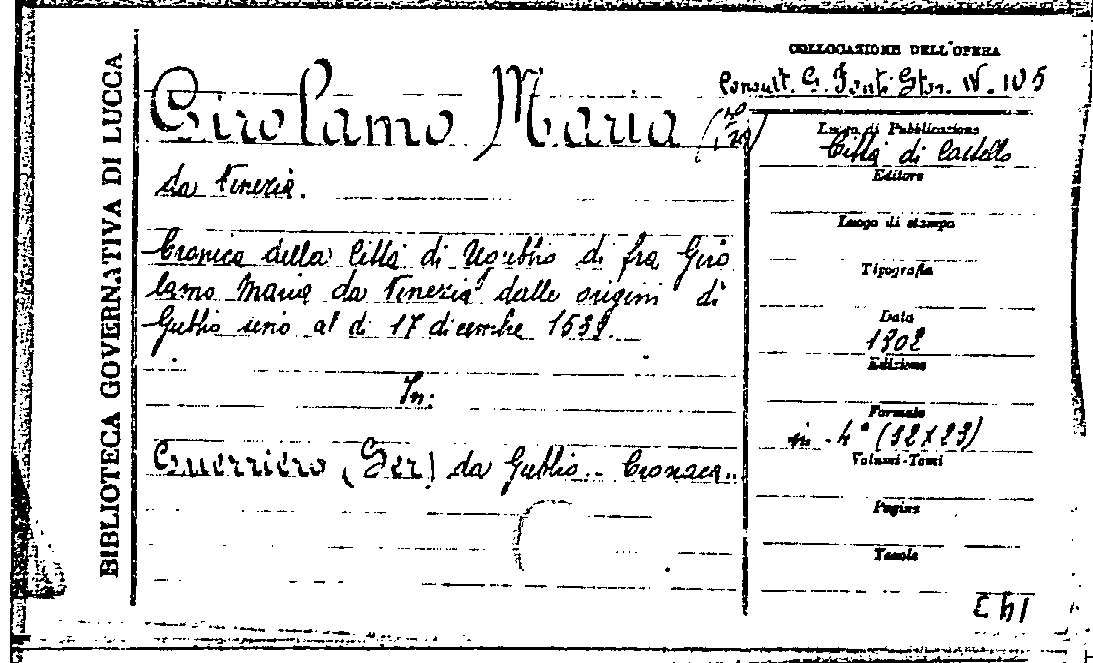 BIBLIOTECA GOVERNATIVA DI LUCCA
Girolamo Maria
da Venezia.
Cronica della Città di Ugubbio di fra Giro
lamo Maria da Venezia dalle origini di
Gubbio sino al dì 17 dicembre 1539.
In:
Guerriero (Ser) da Gubbio.. Cronaca..
COLLOCAZIONE DELL'OPERA
Consult. G. Fonti Stor. IV. 105
Luogo di Pubblicazione
Città di Castello
Editore
Luogo di stampa
Tipografia
Data
1902
Edizione
Formato
in - 4° (32 x 23)
Volumi-Tomi
Pagine
Tavole